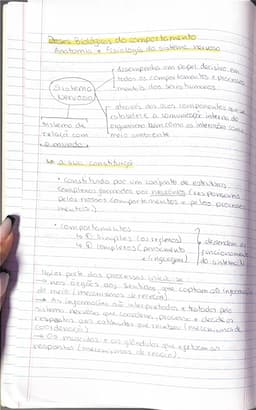 Bases Biológicas do comportamento
Anatomia e Fisiologia do sistema nervoso
Sistema
Nervoso
desempenha um papel decisivo em
todos os comportamentos e processos
mentais dos seres humanos
através dos seus componentes que se
estabelece a comunicação interna do
organismo bem como as interações com o
meio ambiente
sistema de
relação com
o mundo
a sua constituição
• constituído por um conjunto de estruturas
complexas formadas por neurónios (responsáveis
pelos nossos comportamentos e pelos processos
mentais)
• comportamentos
① simples (os reflexos)
② complexos (pensamento
e linguagem)
dependem do
funcionamento
do sistema
fazem parte dos processos
→ nos órgãos dos sentidos que captam as informações
do meio (mecanismos de receção)
→ As informações são interpretadas e tratadas pelo
sistema nervoso que coordena, processa e decide as
respostas aos estímulos que recebeu (mecanismos de
coordenação)
→ Os músculos e as glândulas que efetuam as
respostas (mecanismos de reação)